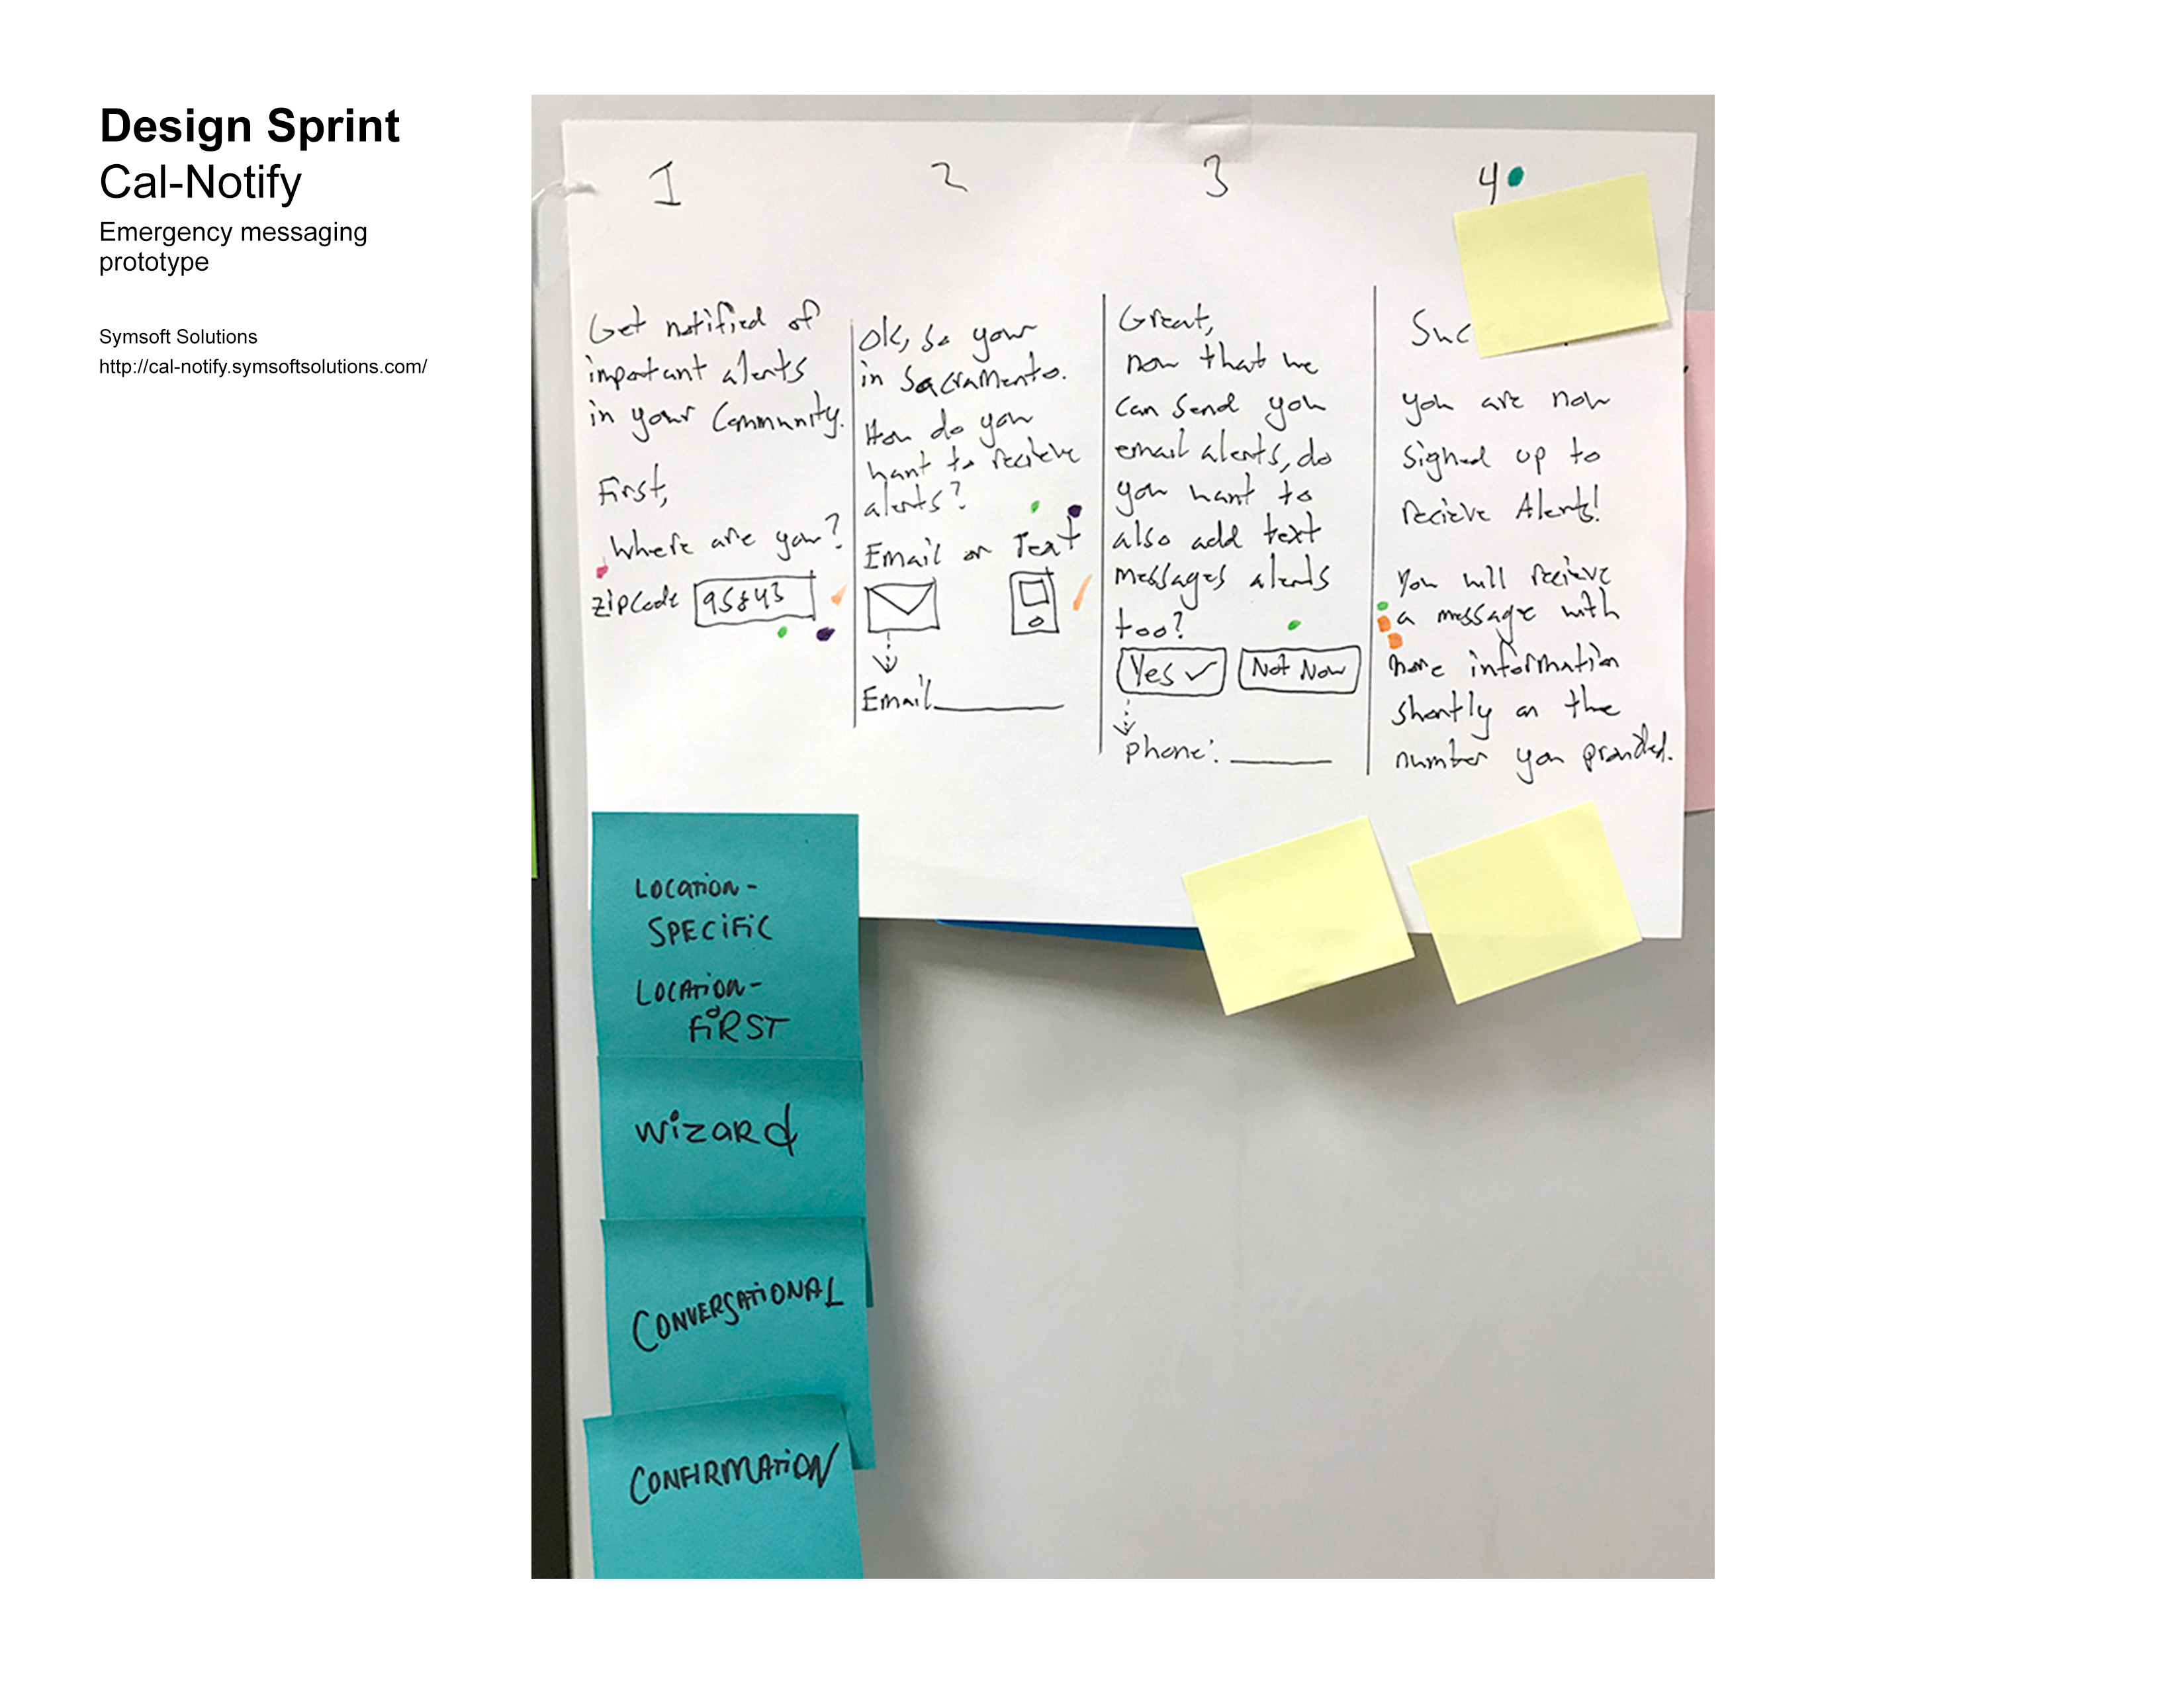 Design Sprint
Cal-Notify
Emergency messaging
prototype
Symsoft Solutions
http://cal-notify.symsoftsolutions.com/
1
2
3
4
Get notified of
important alerts
in your Community.
First,
Where are you?
zipcode 95843
Ok, so your
in Sacramento.
How do you
want to recieve
alerts?
Email or Text
Email
Great,
now that we
can send you
email alerts, do
you want to
also add text
messages alerts
too?
Yes ✓ Not Now
phone:
Suc
you are now
signed up to
recieve Alerts!
You will recieve
a message with
more information
shortly on the
number you provided.
LOCATION-
SPECIFIC
LOCATION-
FIRST
WIZARD
CONVERSATIONAL
CONFIRMATION